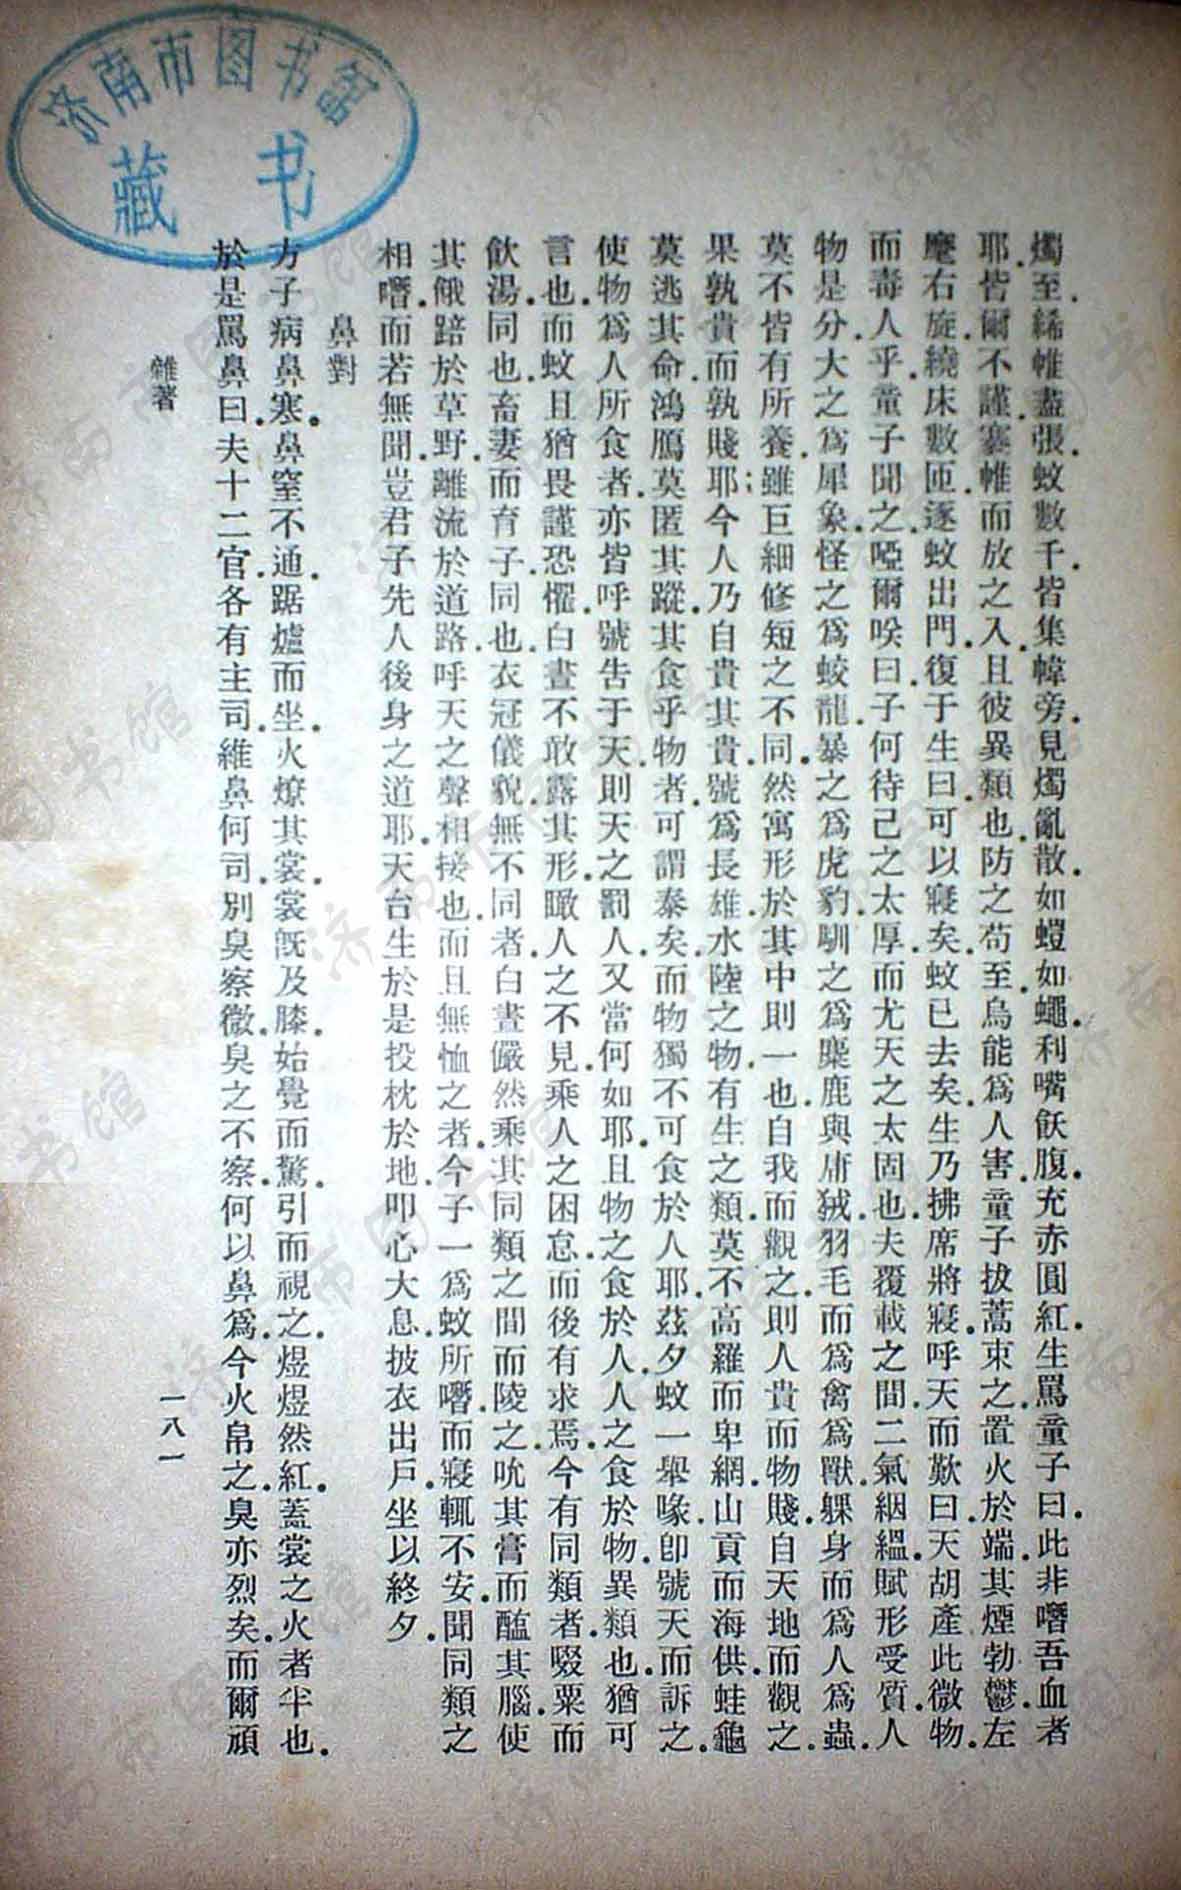 济南市图书馆
藏书
燭至.絺帷盡張.蚊數千.皆集幃旁.見燭亂散.如螘如蠅.利嘴飫腹.充赤圓紅.生罵童子曰.此非噆吾血者
耶.皆爾不謹.褰帷而放之入.且彼異類也.防之苟至.烏能爲人害.童子拔蒿束之.置火於端.其煙勃鬱.左
麾右旋.繞床數匝.逐蚊出門.復于生曰.可以寢矣.蚊已去矣.生乃拂席將寢.呼天而歎曰.天胡產此微物.
而毒人乎.童子聞之.啞爾唉曰.子何待己之太厚.而尤天之太固也.夫覆載之間.二氣絪縕.賦形受質.人
物是分.大之爲犀象.怪之爲蛟龍.暴之爲虎豹.馴之爲麋鹿與庸狨.羽毛而爲禽爲獸.躶身而爲人爲蟲.
莫不皆有所養.雖巨細修短之不同.然寓形於其中則一也.自我而觀之.則人貴而物賤.自天地而觀之.
果孰貴而孰賤耶;今人乃自貴其貴.號爲長雄.水陸之物.有生之類.莫不高羅而卑網.山貢而海供.蛙黽
莫逃其命.鴻鴈莫匿其蹤.其食乎物者.可謂泰矣.而物獨不可食於人耶.茲夕蚊一舉喙.卽號天而訴之.
使物爲人所食者.亦皆呼號告于天.則天之罰人.又當何如耶.且物之食於人.人之食於物.異類也.猶可
言也.而蚊且猶畏謹恐懼.白晝不敢露其形.瞰人之不見.乘人之困怠.而後有求焉.今有同類者.啜粟而
飲湯.同也.畜妻而育子.同也.衣冠儀貌.無不同者.白晝儼然.乘其同類之間而陵之.吮其膏而醢其腦.使
其餓踣於草野.離流於道路.呼天之聲相接也.而且無恤之者.今子一爲蚊所噆.而寢輒不安.聞同類之
相噆.而若無聞.豈君子先人後身之道耶.天台生於是投枕於地.叩心大息.披衣出戶.坐以終夕.
鼻對
方子病鼻寒.鼻窒不通.踞爐而坐.火燎其裳.裳旣及膝.始覺而驚.引而視之.煜煜然紅.蓋裳之火者半也.
於是罵鼻曰.夫十二官.各有主司.維鼻何司.別臭察微.臭之不察.何以鼻爲.今火帛之臭亦烈矣.而爾頑
雜著
一八一